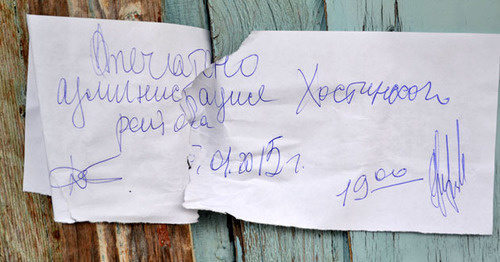 Опечатано
администрация Хостинского
района
.01.2015 г.
19 00